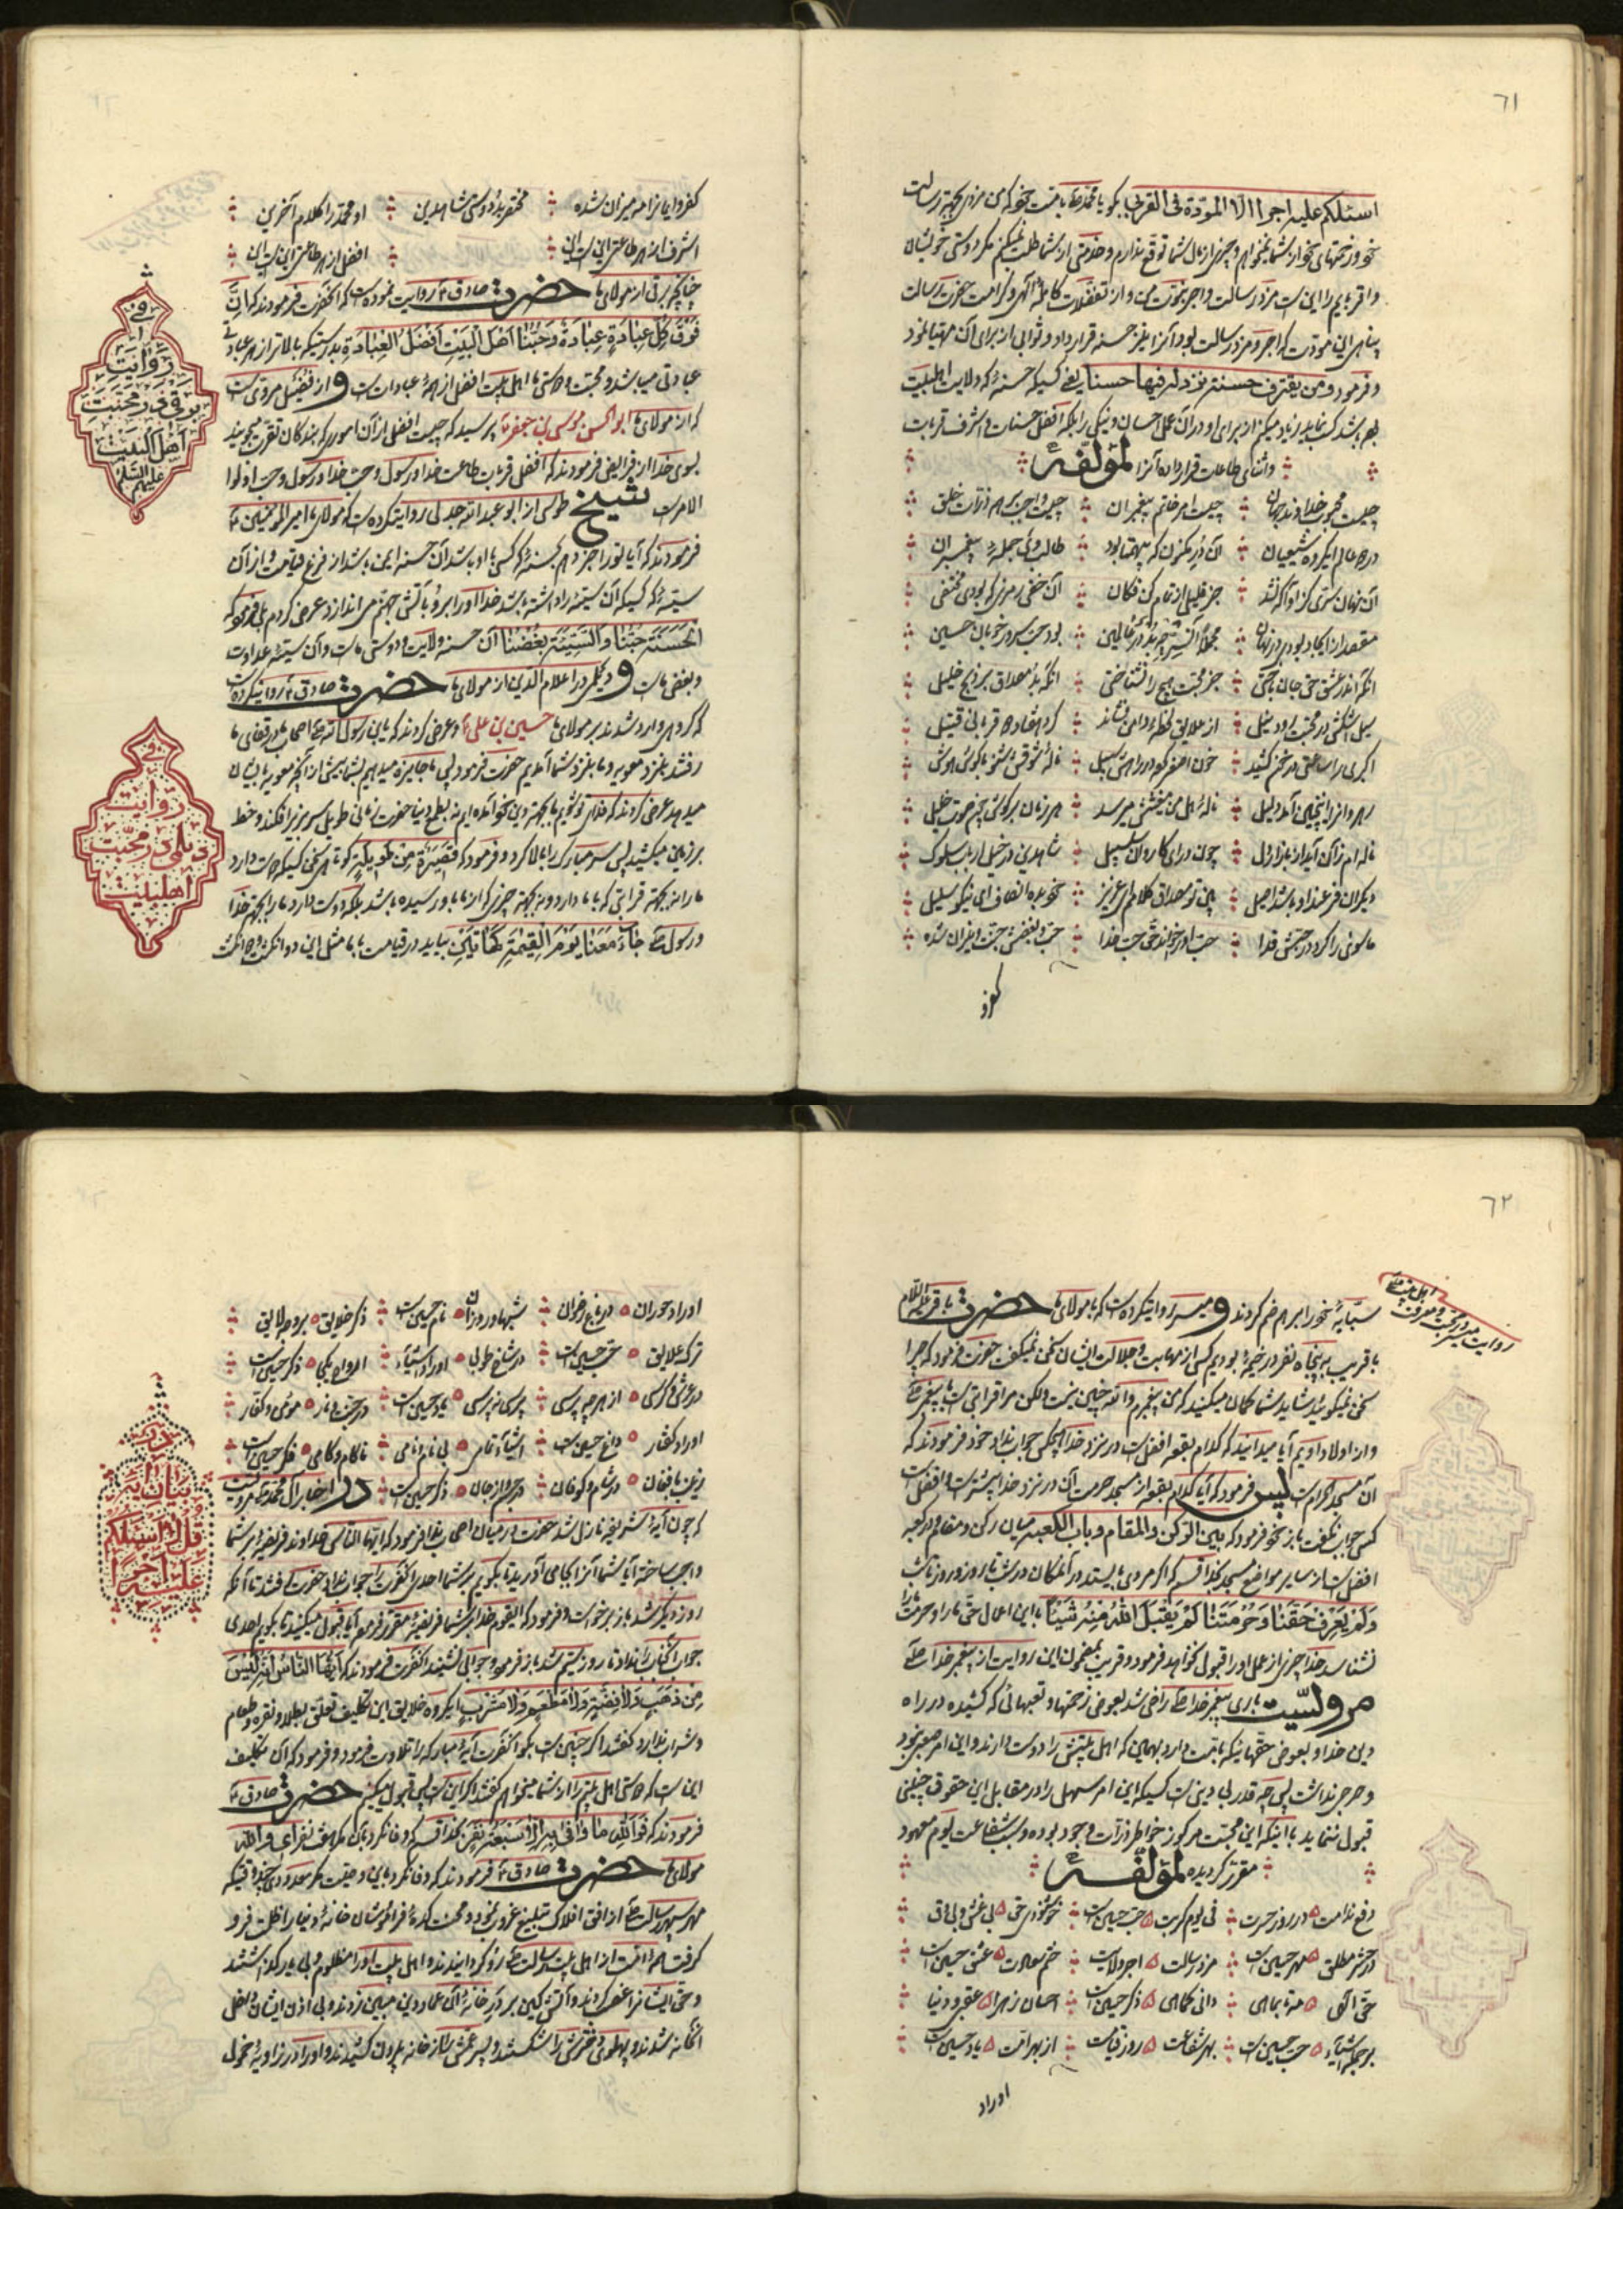 ٦١
اسئلکم علیه اجرا الا المودّة فی القربی بکو یا محمد ص بامت خود که من مزدی بجهة رسالت
خود و زحمتهای خود از شما نمیخواهم و چیزی از مال شما توقع ندارم و خدمتی از شما طلب نمیکنم مکر دوستی خویشان
و اقربایم را این است مزد رسالت و اجر نبوت من و از تفضلات کامله الهی و کرامت حضرت رسالت
پناهی این مودت که اجر و مزد رسالت بود آنرا نیز حسنه قرار داد و ثوابی از برای آن مهیا نمود
و فرمود و من یقترف حسنة نزد له فیها حسنا یعنی کسیکه حسنهٔ که ولایت اهلبیت
بهم رساند زیاد میکنم از برای او در آن عمل احسان و نیکی را بلکه افضل حسنات و اشرف قربات
و اثنای طاعات قرار داده آنرا لمؤلفه
چیست محبوب خداوند جهان چیست امر خاتم پیغمبران چیست واجب بر همه ذرات خلق
در دو عالم ایکروه شیعیان آن در مکنون که بیهمتا بود طالب وی جملهٔ پیغمبران
آن نهان سری کزو آکه نشد جز قلیلی از تمام کن فکان آن خفی رمزی که بودی مختفی
مقصد از ایجاد بود در دو جهان بود حب سرور خوبان حسین
انکه اندر عشق حق جان باختی جز محبت هیچ را نشناختی انکه بد مصداق بر ذبح خلیل
سیل اشکش در محبت رود نیل از علایق لحظهٔ دامن فشاند کرد هفتاد و دو قربانی قتیل
اکبری را ساعتی در خون کشید خون اصغر کرد در راهش سبیل نالهٔ شوقش شنو با کوش هوش
رهروانرا اینچنین آمد دلیل نالهٔ اهل من میرسد هر زمان بر کوش چون صوت خلیل
ناله ام زآن آید از بازار دل چون درای کاروان سلسبیل شاهدین در خیل ارباب سلوک
دیکران فرعند او باشد اصیل این تو مصداق کلامم ای عزیز خود بده انصاف ای نیکو سبیل
ماسوی را کرده در حبش فدا حب او را خوانده حق حب خدا حب و بغضش جنت و نیران شده
کفر و
کفر و ایمانرا همه میزان شده مختصر بد دوستی شاهدین او محمد را کلام آخرین
اشرف از هر طاعتی این است این افضل از هر طاعتی این است این
چنانچه برقی از مولای ما حضرت صادق ع روایت نموده است که آنحضرت فرمودند که ان
فوق کل عبادة عبادة و حبنا اهل البیت افضل العبادة بدرستیکه بالاتر از هر عبادتی
عبادتی میباشد و محبت و دوستی ما اهل بیت افضل از همهٔ عبادات است و از فضیل مرویست
که از مولای ما ابو الحسن موسی بن جعفر ع پرسید که چیست افضل از آن اموریکه بندکان تقرب میجویند
بسوی خدا از فرایض فرمودند که افضل قربات طاعت خدا و رسول و حب خدا و رسول و حب اولوا
الامر است شیخ طوسی از ابو عبد الله جدلی روایت کرده است که مولای ما امیر المؤمنین ع
فرمودند که آیا تو را خبر دهم بحسنهٔ که کسی با او باشد آن حسنه ایمن باشد از فزع قیامت و از آن
سیئهٔ که کسیکه آن سیئه را داشته باشد خدا او را برو بآتش جهنم می اندازد عرض کردم بلی فرمود که
الحسنة حبنا و السیئة بغضنا آن حسنه ولایت و دوستی ماست و آن سیئه عداوت
و بغض ماست و دیلمی در اعلام الدین از مولای ما حضرت صادق ع روایتکرده است
که کروهی وارد شدند بر مولای ما حسین بن علی ع و عرض کردند که یا بن رسول الله ص اصحاب و رفقای ما
رفتند بنزد معویه و ما بنزد شما آمدیم حضرت فرمود پس ما جایزه میدهیم بشما بیش از آنچه معویه بایشان
میدهد عرض کردند که فدای تو شویم ما بجهة دین خود آمده ایم نه بطمع دنیا حضرت زمانی طویل سر بزیر افکند و خط
بر زمین میکشید پس سر مبارک را بالا کرد و فرمود که قصیرة من طویلة کوتاهی سخن کسیکه دوست دارد
ما را نه بجهة قرابتی که با ما دارد و نه بجهة چیزی که از ما باو رسیده باشد بلکه دوست دارد ما را بجهة خدا
و رسول ص جاء معنا یوم القیمة کهاتین بیاید در قیامت با ما مثل این دو انکشت و دو انکشت
فی روایت برقی در محبت اهل البیت علیهم السلام
فی روایت دیلمی در محبت اهلبیت
٦٢
روایت میسر در محبت و معرفت اهل بیت ع
سبابهٔ خود را بر هم ضم کردند و میسر روایتکرده است که با مولای ما حضرت باقر علیه السلام
ما قریب به پنجاه نفر در خیمهٔ بودیم کسی از مهابت و جلالت ایشان سخن نمیکفت حضرت فرمود که چرا
سخن نمیکوئید شاید شما کمان میکنید که من پیغمبرم والله چنین نیست ولکن مرا قرابتی است با پیغمبر ص
و از اولاد اویم آیا میدانید که کدام بقعه افضل است در نزد خدا هیچکس جواب نداد خود فرمودند که
آن مسجد الحرام است پس فرمود که آیا کدام بقعه از مسجد حرمت آن در نزد خدا بیشتر است و افضل است
کسی جواب نکفت باز خود فرمود که بین الرکن و المقام و باب الکعبه میان رکن و مقام و در کعبه
افضل است از سایر مواضع مسجد بخدا قسم که اکر مردی بایستد در آنمکان در شب تا روز و روز تا شب
و لم یعرف حقنا و حرمتنا لم یقبل الله منه شیئا با این اعمال حق ما را و حرمت ما را
نشناسد خدا چیزی از عمل او را قبول نخواهد فرمود و قریب بمضمون این روایت از پیغمبر خدا ص
مرویست باری پیغمبر خدا ص راضی شد بعوض زحمتها و تعبهائی که کشیده در راه
دین خدا و بعوض حقهائیکه بامت دارد بهمین که اهل بیتش را دوست دارند و این امر صعبی نبود
و حرجی نداشت پس چه قدر بی دینی است کسیکه این امر سهل را در مقابل این حقوق چنینی
قبول ننماید با اینکه این محبت مرکوز خواطر ذرات وجود بوده و سبب شفاعت یوم معهود
مقرر کردیده لمؤلفه
دفع ندامت در روز حسرت فی یوم کربت حب حسین است خوشنودی حق
در حشر مطلق مهر حسین است مزد رسالت اجر ولایت ختم سعادت عشق حسین است
حق آلهی مه تا بماهی دانی کماهی ذکر حسین است احسان زهرا عقبی و دنیا
بر جمله اشیاء حب حسین است بهر شفاعت روز قیامت از بهر امت یاد حسین است
اوراد
اوراد حوران در باغ رضوان شبها و روزان نام حسین است ذکر خلایق
ترک علایق حب حسین است در شاخ طوبی اوراد اشیاء ذکر حسین است
در عرش و کرسی از هر چه پرسی پرسی نپرسی یاد حسین است در جنت و نار مؤمن و کفار
اوراد کفتار داغ حسین است اشیاء تمامی ناکام و کامی فکر حسین است
زینب بافغان در شام و کوفان ذکر حسین است در اخبار آل محمد ص مرویست
که چون آیهٔ شریفه نازل شد حضرت در میان اصحاب ندا فرمود که ایها الناس خداوند فریضهٔ بر شما
واجب ساخته آیا شما آنرا بجا می آورید تا بکویم بر شما احدی آنحضرت را جواب نداد حضرت
روز دیکر شد باز برخواست و فرمود که ایقوم خدا بر شما فریضهٔ مقرر فرموده آیا قبول میکنید تا بکویم احدی
جواب آنجناب را نداد تا روز سیم شد باز فرمود و جوابی نشنید آنحضرت فرمودند که ایها الناس انه لیس
من ذهب و لا فضة و لا مطعم و لا مشرب ایکروه خلایق این تکلیف تعلق بطلا و نقره و طعام
و شراب ندارد کفتند اکر چنین است بکو آنحضرت آیهٔ مبارکه را تلاوت فرمود و فرمود که آن تکلیف
این است که دوستی اهل بیتم را از شما میخواهم کفتند اکر این است پس قبول میکنیم حضرت صادق ع
فرمودند که فوالله ما وفی بها الا سبعة نفر بخدا قسم که وفا نکرد بآن مکر هفت نفر ای والله
مولای ما حضرت صادق ع فرمودند که وفا نکرد باین وصیت مکر معدودی چند وقتیکه
مهر سپهر رسالت ص از افق افلاک تبلیغ غروب نمود و محنت کدهٔ فراموشان خانهٔ دنیا را ظلمت فرو
کرفت همهٔ امت از اهل بیت رسالت ص رو کردانیدند و اهل بیت او را مظلوم و بی یار کذاشتند
و حق ایشانرا غصب کردند و آتش کین بر در خانهٔ آن عماد دین مبین زدند و بی اذن ایشان داخل
آنخانه شدند و پهلوی دخترش را شکستند و پسر عمش را از خانه بیرون کشیدند و او را در زاویهٔ خمول
در بیان آیه قل لا اسئلکم علیه اجرا